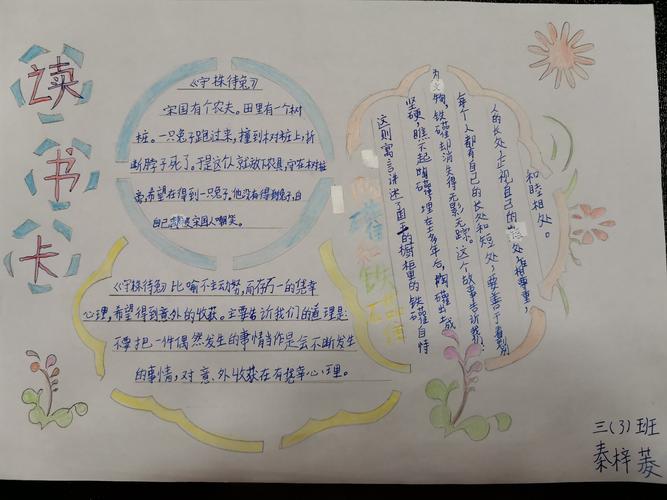 读
书
卡
《守株待兔》
宋国有个农夫。田里有一个树
桩。一只兔子跑过来，撞到树桩上，折
断脖子死了。于是这人就放下农具，守在树桩
旁，希望在得到一只兔子。他没有得到兔子，自
自己被宋国人嘲笑。
《守株待兔》比喻不主动努，而存万一的侥幸
心理，希望得到意外的收获。主要告诉我们的道理是：
不要把一件偶然发生的事情当作是会不断发生
的事情，对意外收获在有侥幸心理。
陶罐和铁罐
这则寓言讲述了国王的橱柜里的铁罐自恃
坚硬，瞧不起陶罐，埋在土多年后，陶罐出土成
为文物，铁罐却消失得无影无踪。这个故事告诉我们：
每个人都有自己的长处和短处，要善于看到别
人的长处，正视自己的短处，互相尊重，
和睦相处。
三（3）班
秦梓菱